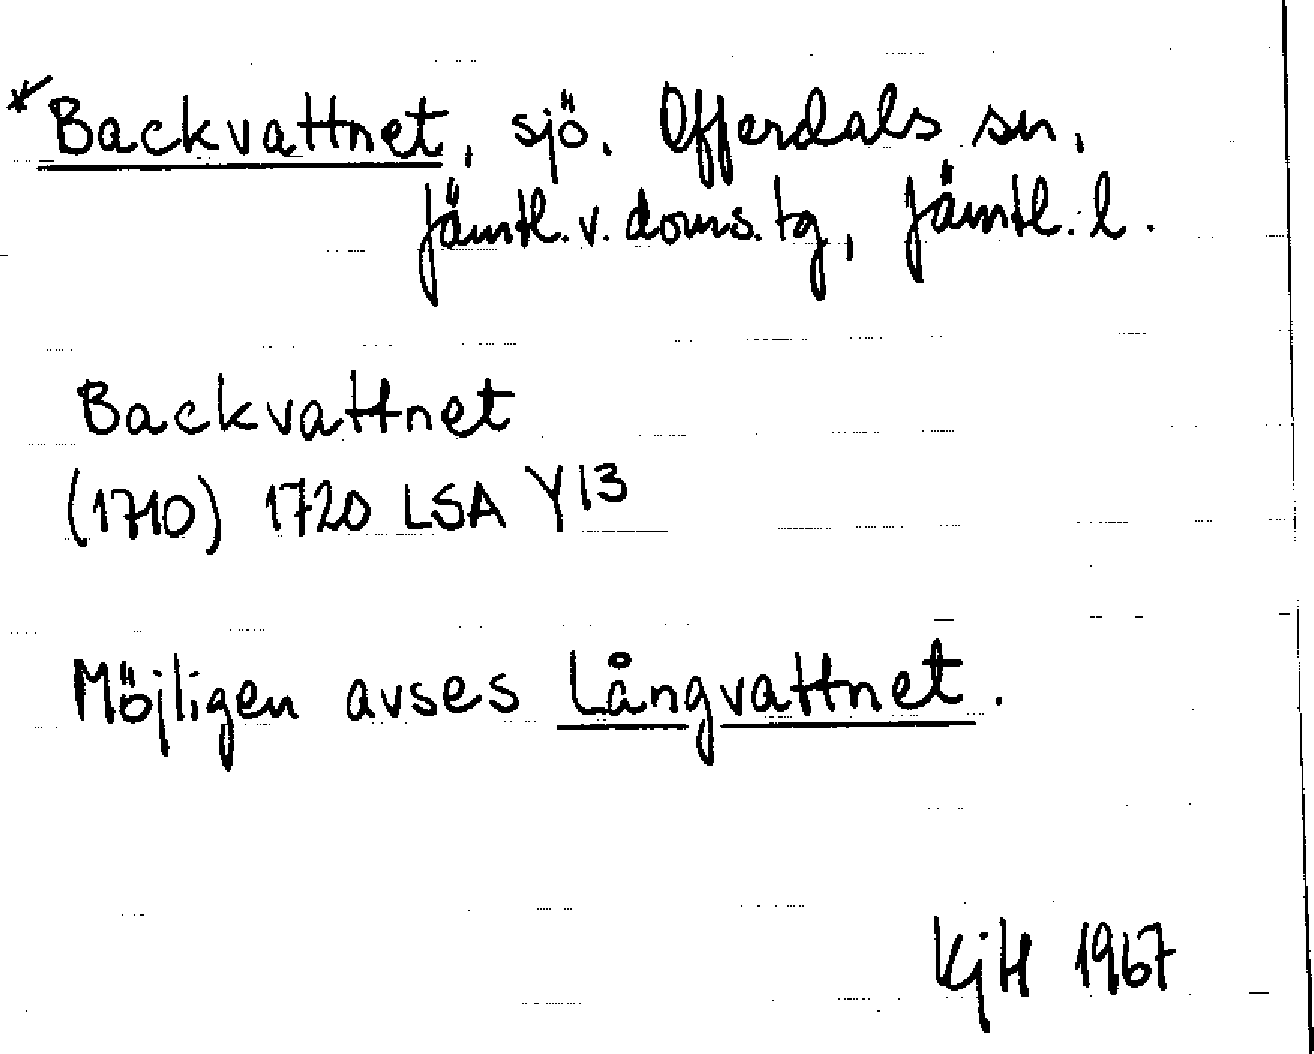 *Backvattnet, sjö. Offerdals sn,
Jämtl. v. doms. tg, Jämtl. l.
Backvattnet
(1710) 1720 LSA Y13
Möjligen avses Långvattnet.
KjH 1967